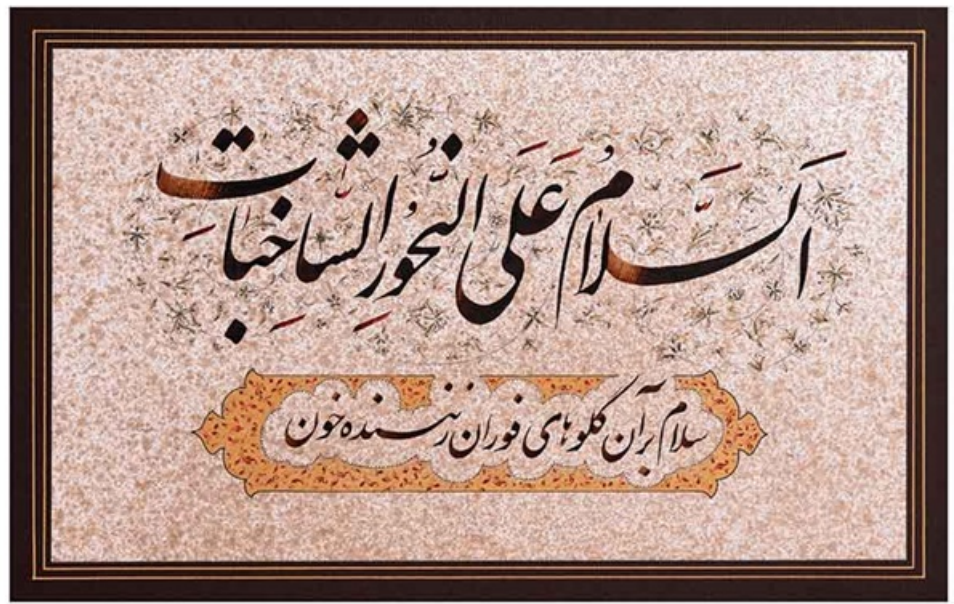 اَلسَّلامُ عَلَی النُّحُورِ الشّاخِباتِ
سلام بر آن گلوهای فوران زننده خون